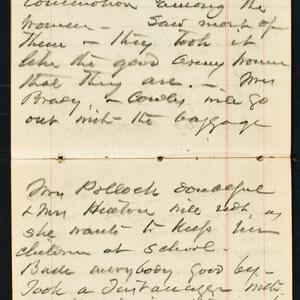 commotion among the
women - Saw most of
them - they took it
like the good Army women
that they are. - Mrs
Brady & Cowles will go
out with the baggage
Mrs Pollock doubtful
& Mrs Huston will not, as
she wants to keep her
children at school -
Bade everybody good bye -
Took a